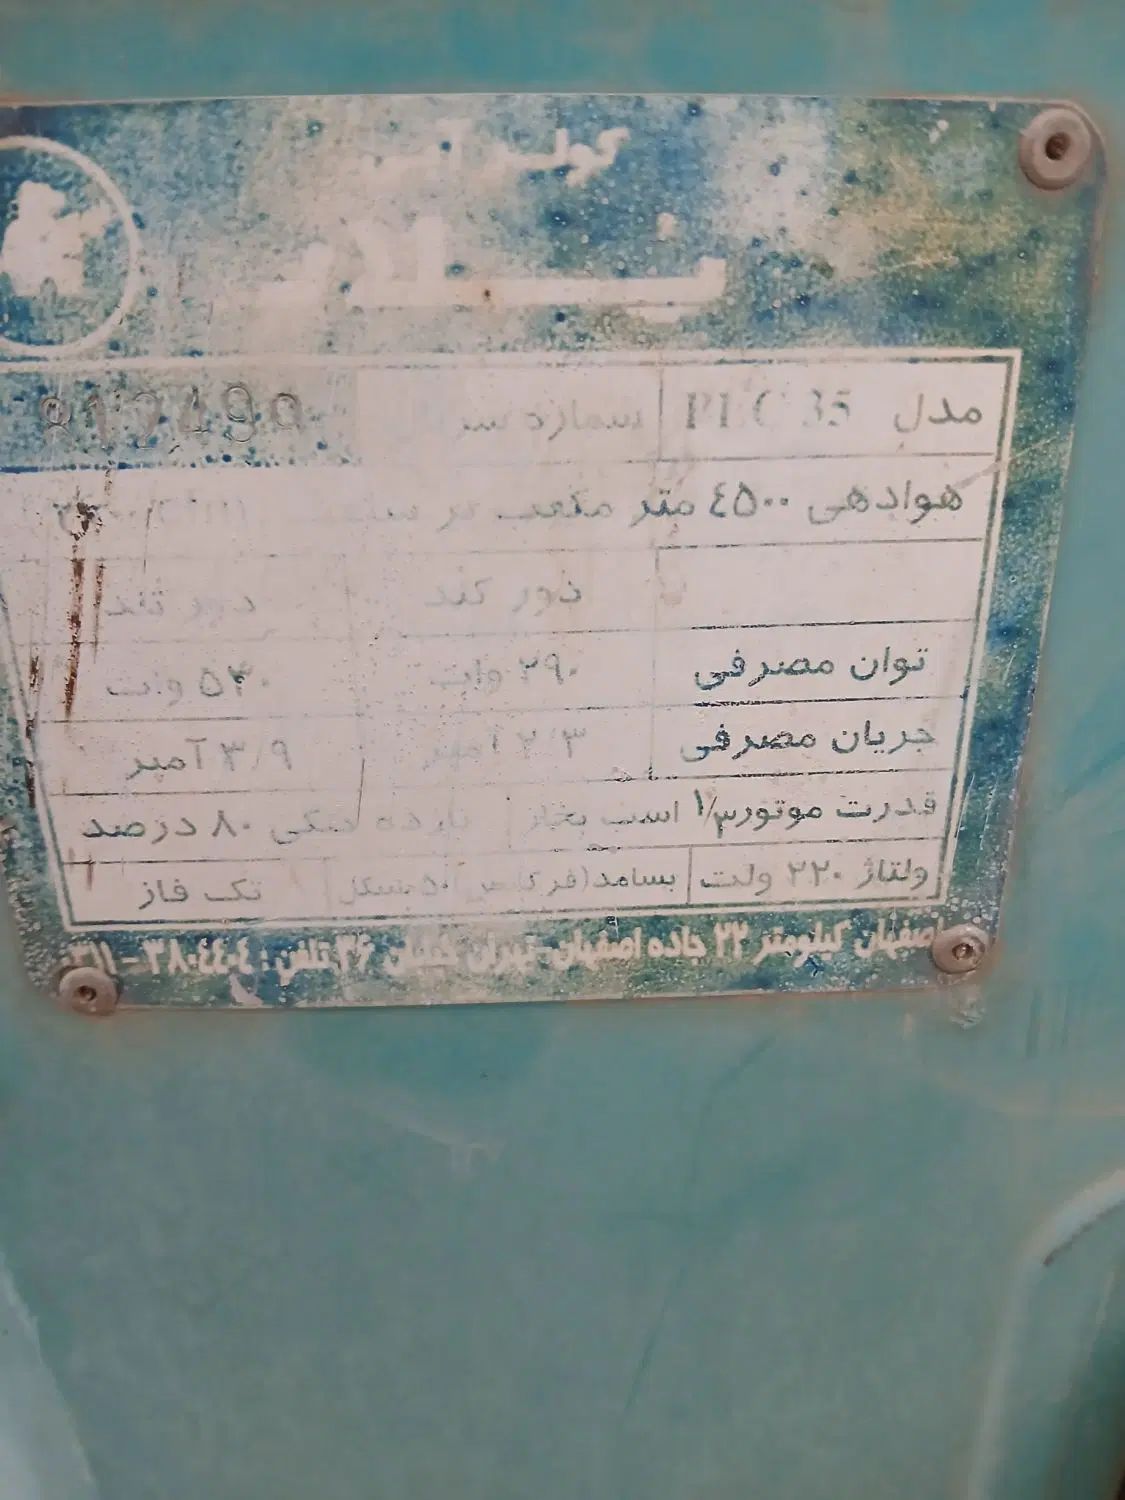 کولر آبی
مدل PLC 35 شماره سریال
هوادهی ٤٥٠٠ متر مکعب بر ساعت
دور کند دور تند
توان مصرفی ۲۹۰ وات ۵۳۰ وات
جریان مصرفی ۲/۳ آمپر ۳/۹ آمپر
قدرت موتور ۱/۳ اسب بخار بازده خنکی ۸۰ درصد
ولتاژ ۲۲۰ ولت بسامد(فرکانس) ۵۰ سیکل تک فاز
اصفهان کیلومتر ۲۲ جاده اصفهان-تهران تلفن: ۳۸۰٤٤۰٤ - ۰۳۱۱